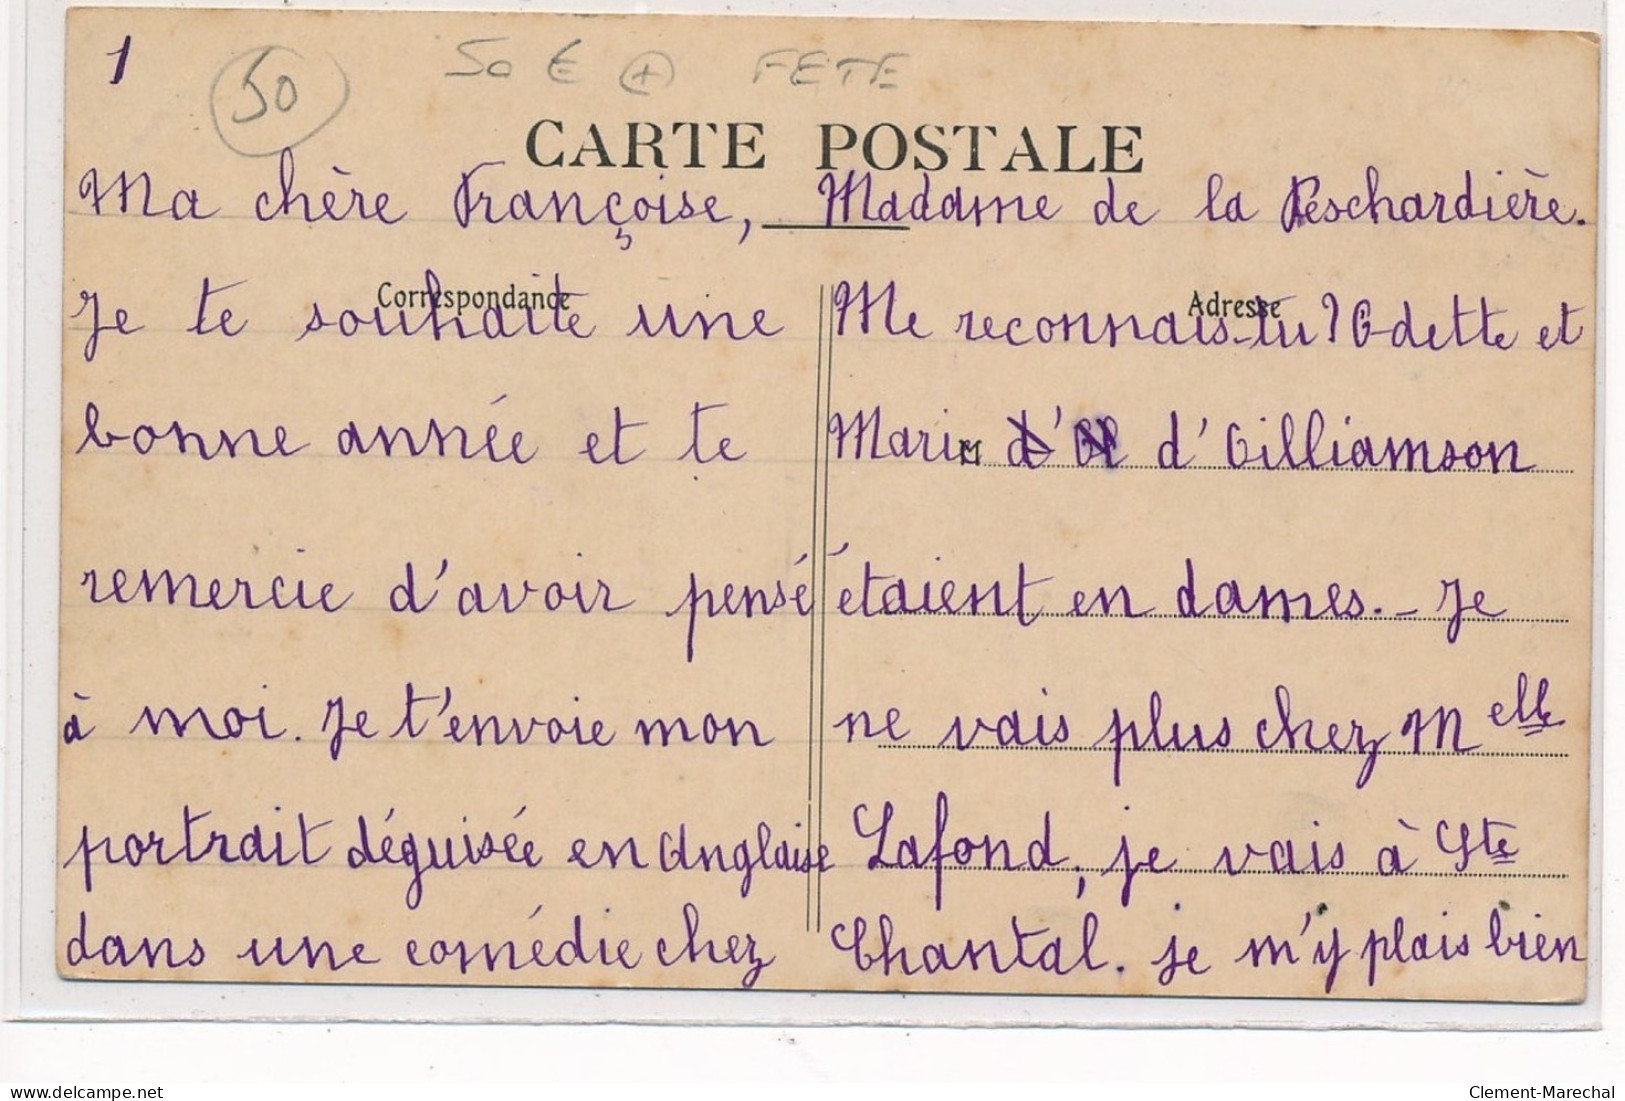 1
50
50 € + FETE
CARTE POSTALE
Correspondance
Adresse
Ma chère Françoise,
Je te souhaite une
bonne année et te
remercie d'avoir pensé
à moi. Je t'envoie mon
portrait déguisée en Anglaise
dans une comédie chez
Madame de la Peschardière.
Me reconnais-tu? Odette et
Marie d'Oilliamson
étaient en dames. - Je
ne vais plus chez Melle
Lafond, je vais à Ste
Chantal. je m'y plais bien
delcampe.net
Clement-Marechal